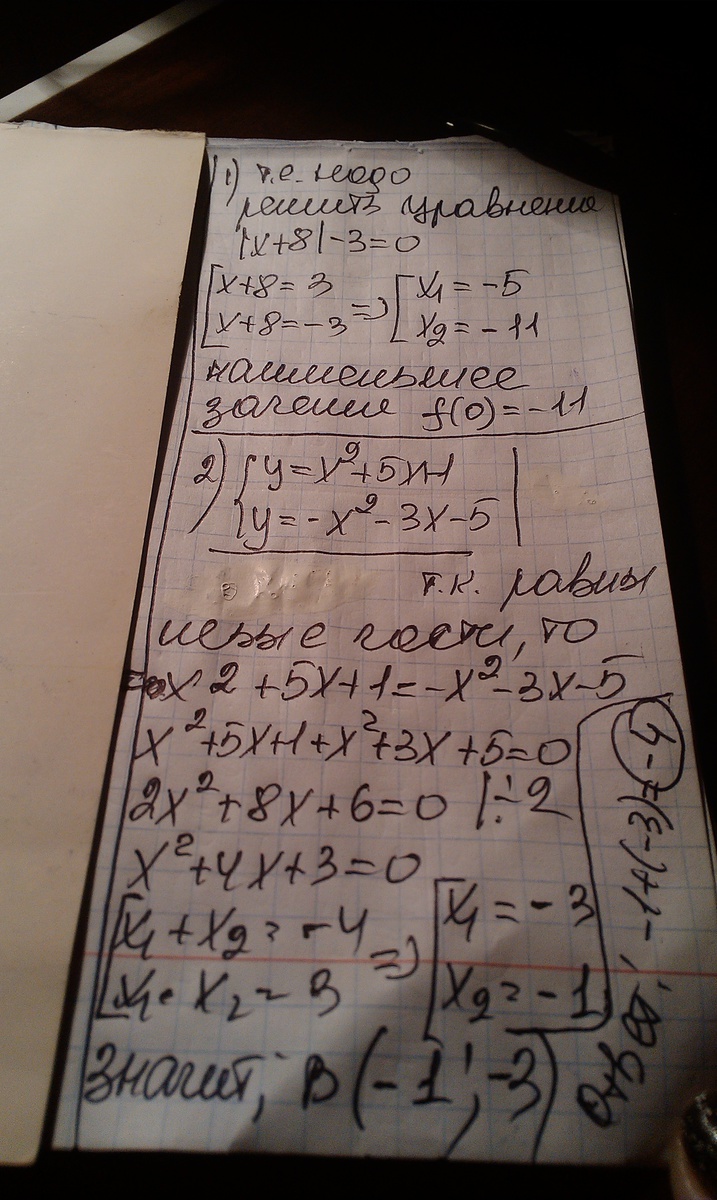 1) т.е. надо
решить уравнение
|x+8|-3=0
[x+8=3 => [x₁=-5
[x+8=-3 [x₂=-11
наименьшее
значение f(0)=-11
2) {y=x²+5x+1
{y=-x²-3x-5
т.к. равны
левые части, то
x²+5x+1=-x²-3x-5
x²+5x+1+x²+3x+5=0
2x²+8x+6=0 |:2
x²+4x+3=0
[x₁+x₂=-4 => [x₁=-3
[x₁·x₂=3 [x₂=-1
значит, B(-1;-3)
Ответ: -1+(-3)=-4